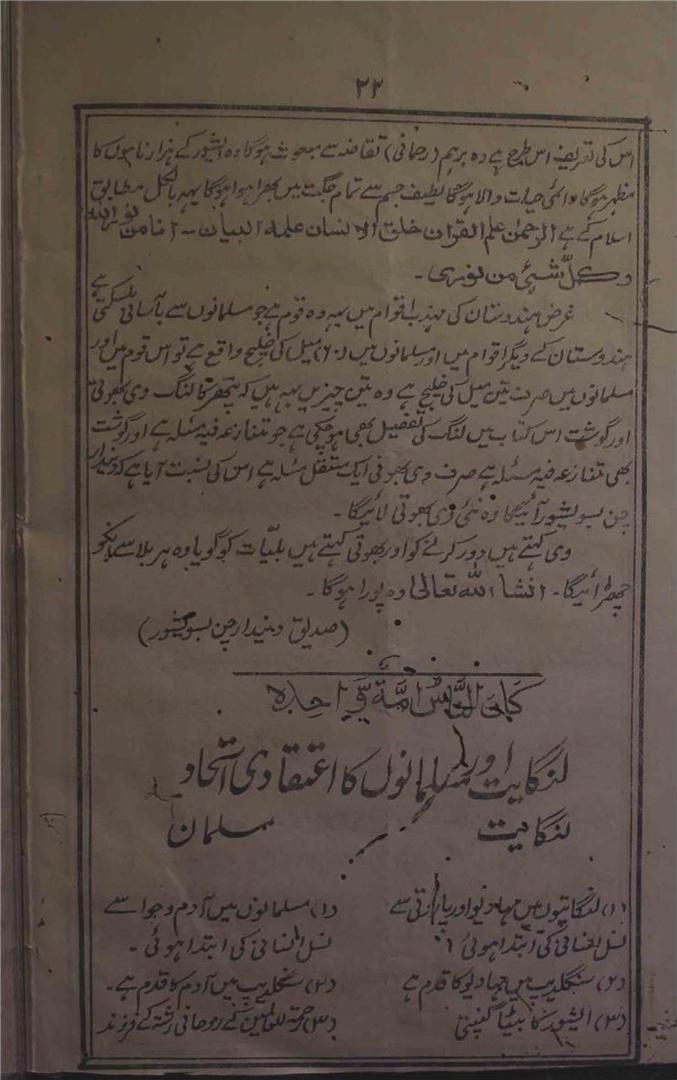 ۲۲
اس کی تعریف اس طرح ہے وہ برہم (رحمانی) تقاضہ سے مبعوث ہوگا وہ ایشور کے ہزار ناموں کا
مظہر ہوگا دائمی حیات والا ہوگا لطیف جسم سے تمام جگت میں بھرا ہوا ہوگا یہہ بالکل مطابق
اسلام کے ہے الرحمٰن علم القرآن خلق الانسان علمہ البیان ۔ انا من نور اللہ
وکلّ شیئ من نوری ۔
غرض ہندوستان کی مہذب اقوام میں یہہ وہ قوم ہے جو مسلمانوں سے بآسانی مل سکتی ہے
ہندوستان کے دیگر اقوام میں اور مسلمانوں میں (۶۰) میل کی خلیج واقع ہے تو اس قوم میں اور
مسلمانوں میں صرف تین میل کی خلیج ہے وہ تین چیزیں یہہ ہیں کہ پتھر کا لنگ وی بھوتی
اور گوشت اس کتاب میں لنگ کی تفصیل بھی ہوچکی ہے جو متنازعہ فیہ مسئلہ ہے اور گوشت
بھی متنازعہ فیہ مسئلہ ہے صرف وی بھوتی ایک مستقل مسئلہ ہے اس کی نسبت آیا ہے کہ دیندار
چن بسویشور آئیگا وہ نئی وی بھوتی لائیگا ۔
وی کہتے ہیں دور کرنے کو اور بھوتی کہتے ہیں بلیّات کو گویا وہ ہر بلا سے انکو
چھڑائیگا ۔ انشا اللہ تعالیٰ وہ پورا ہوگا ۔
(صدیق دیندار چن بسویشور)
کان الناس امۃ واحدہ
لنگایت اور مسلمانوں کا اعتقادی اتحاد
لنگایت مسلمان
(۱) لنگائتوں میں مہادیو اور پاربتی سے (۱) مسلمانوں میں آدم و حوا سے
نسل انسانی کی ابتدا ہوئی نسل انسانی کی ابتدا ہوئی ۔
(۲) سنگلدیپ میں مہادیو کا قدم ہے (۲) سنگلدیپ میں آدم کا قدم ہے ۔
(۳) ایشور کا بیٹا گنپتی (۳) رحمۃ للعالمین کے روحانی رشتہ کے فرزند